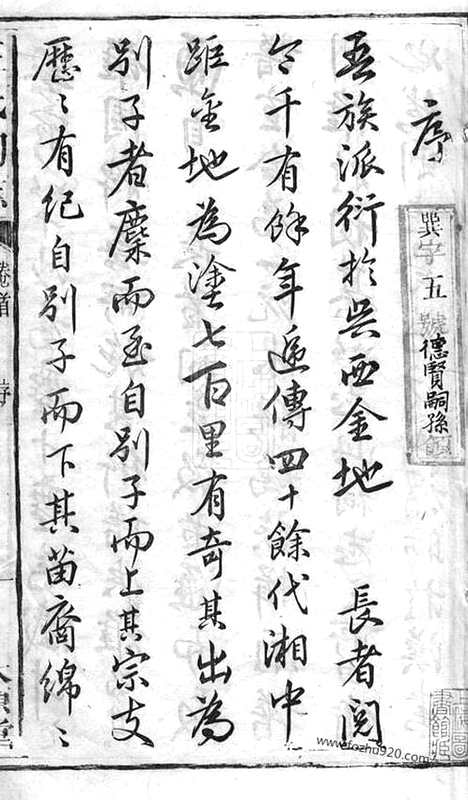 序
巽字五號德賢嗣孫領
吾族派衍於吳西金地 長者闵
今千有餘年遞傳四十餘代湘中
距金地為塗七百里有奇其出為
別子者麇而至自別子而上其宗支
歷〻有紀自別子而下其苗裔綿〻
卷首 序
www.fozhu920.com